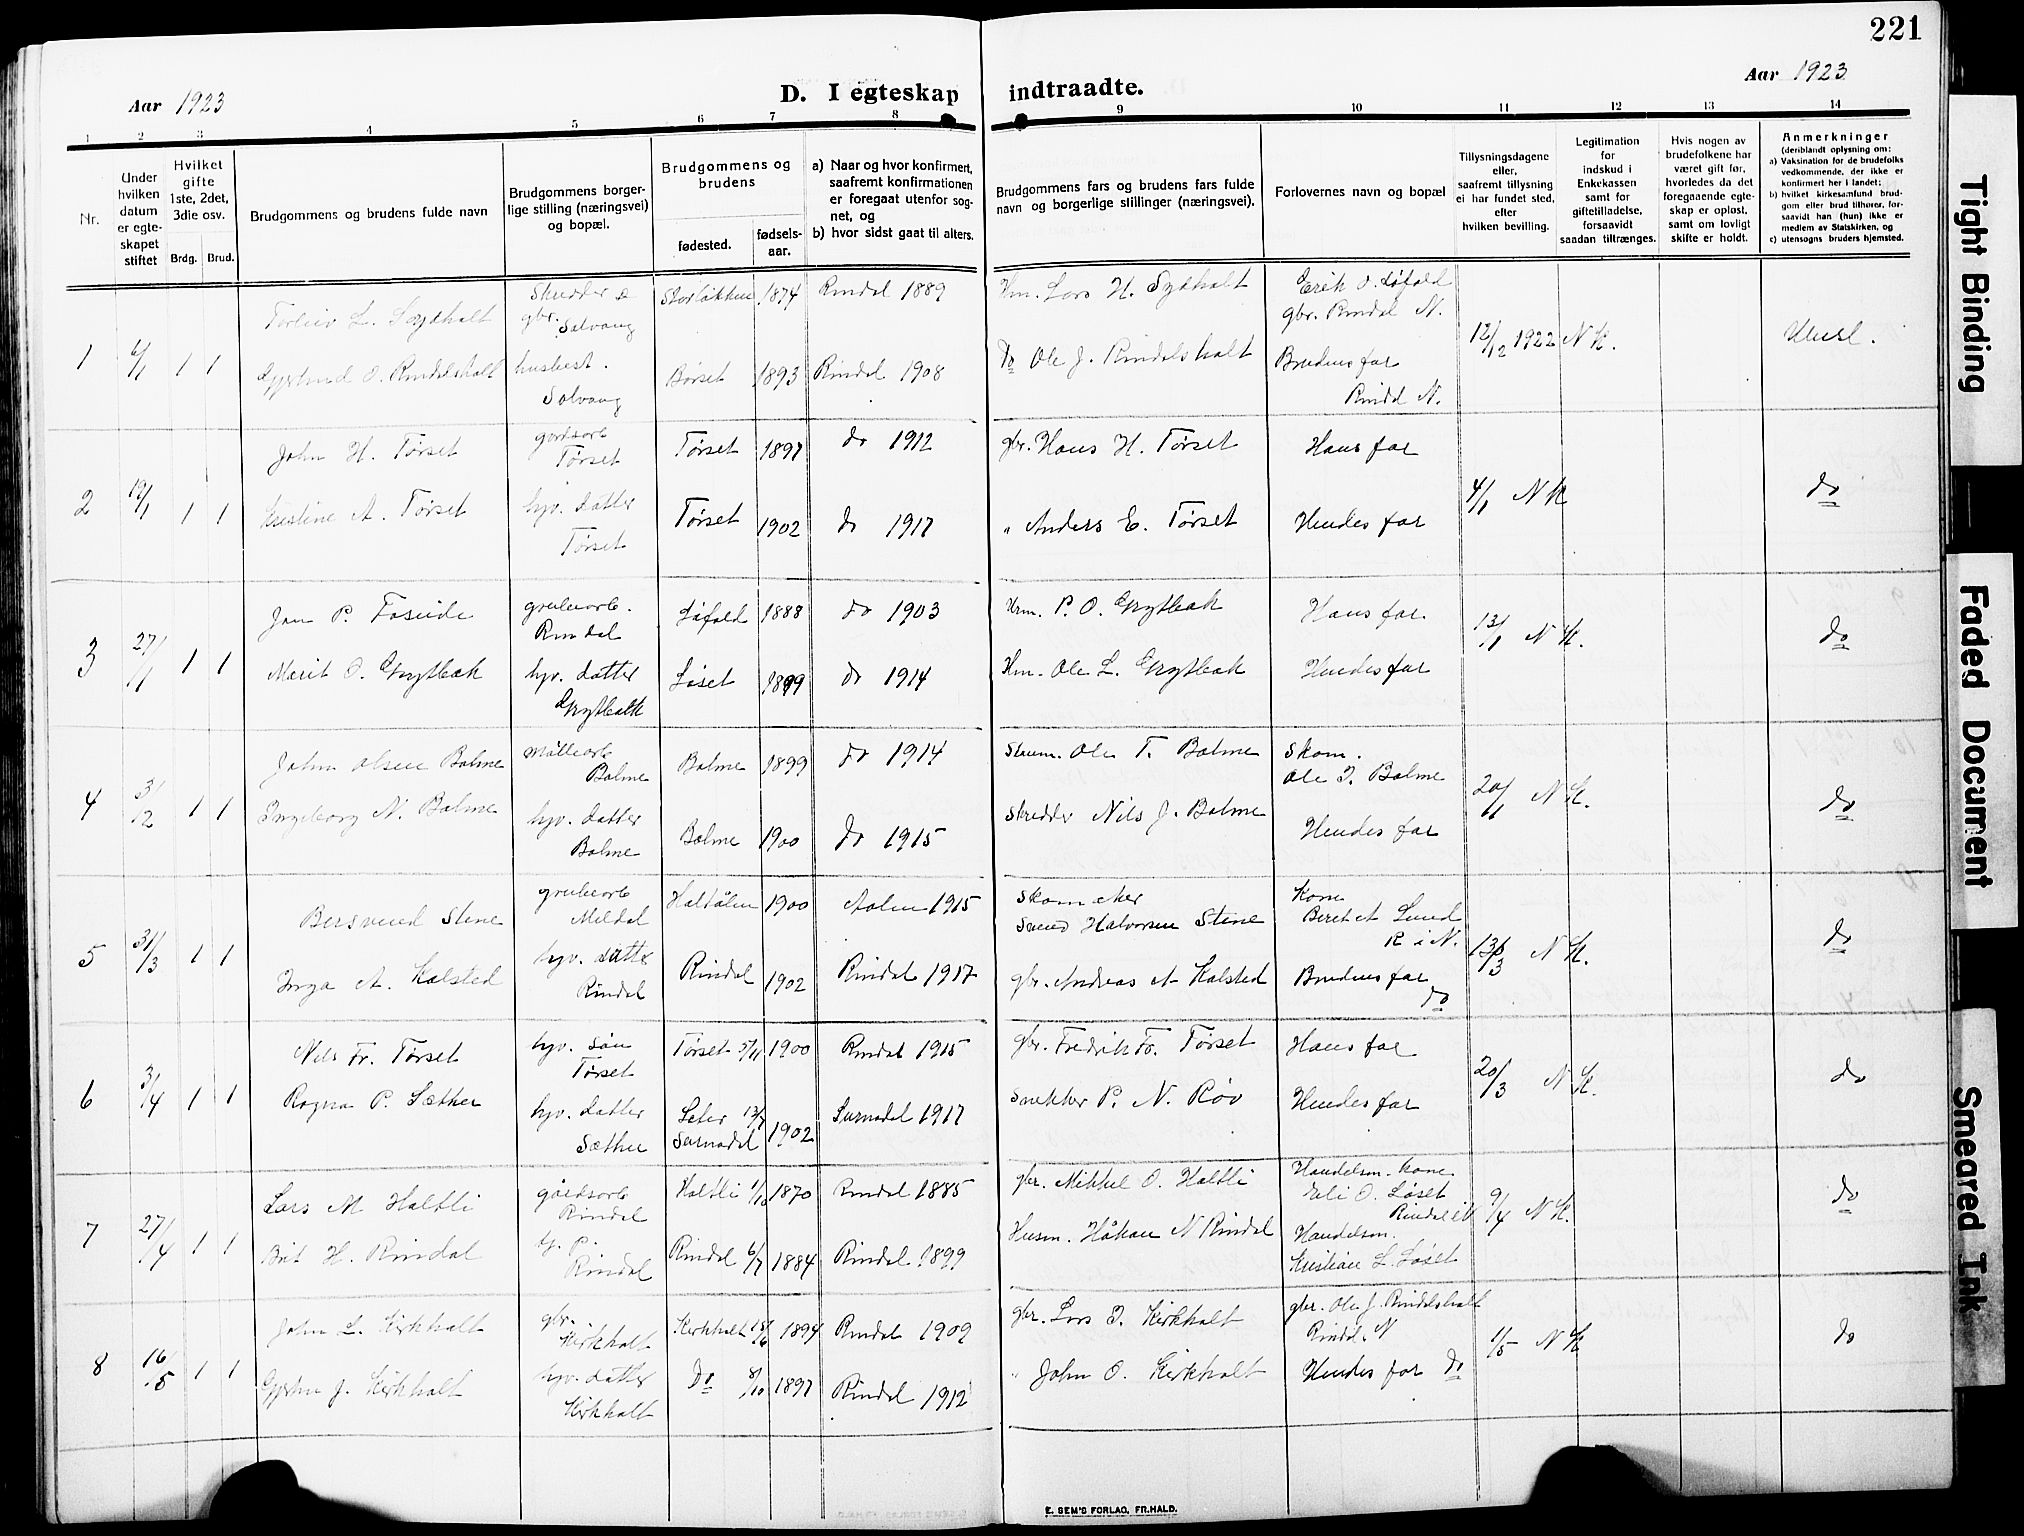 221
Aar 1923
D. I egteskap indtraadte.
Aar 1923
1 2 3 4 5 6 7 8 9 10 11 12 13 14
Nr.
Under hvilken datum er egteskapet stiftet
Hvilket gifte 1ste, 2det, 3die osv.
Brdg. Brud.
Brudgommens og brudens fulde navn
Brudgommens borgerlige stilling (næringsvei) og bopæl.
Brudgommens og brudens
fødested.
fødselsaar.
a) Naar og hvor konfirmert, saafremt konfirmationen er foregaat utenfor sognet, og
b) hvor sidst gaat til alters.
Brudgommens fars og brudens fars fulde navn og borgerlige stillinger (næringsvei).
Forlovernes navn og bopæl
Tillysningsdagene eller, saafremt tillysning ei har fundet sted, efter hvilken bevilling.
Legitimation for indskud i Enkekassen samt for giftetilladelse, forsaavidt saadan tiltrænges.
Hvis nogen av brudefolkene har været gift før, hvorledes da det foregaaende egteskap er opløst, samt om lovligt skifte er holdt.
Anmerkninger
(deriblandt oplysning om:
a) Vaksination for de brudefolks vedkommende, der ikke er konfirmert her i landet;
b) hvilket kirkesamfund brudgom eller brud tilhører, forsaavidt han (hun) ikke er medlem av Statskirken, og
c) utensogns bruders hjemsted.
1 6/1 1 1
skrædder &
gbr. Solvang
1874 Rindal 1889
Hm. Lars H.
Erik O. Løfald
gbr. Rindal N.
12/12 1922 N K.
O. Rindalsholt
husbest.
Solvang
Børset 1893 Rindal 1908
do Ole J. Rindalsholt
Brudens far
Rindal N.
2 19/1 1 1
John H. Tørset
gaardsarb
Tørset
Tørset 1897 do 1912
gbr. Hans H. Tørset
Hans far
4/1 N K
do
Kristine A. Tørset
hjv. datter
Tørset
Tørset 1902 do 1917
" Anders E. Tørset
Hendes far
3 27/1 1 1
Jon P.
grubearb.
Rindal
Løfald 1888 do 1903
Hm. P. O. Grytbak
Hans far
13/1 N K.
do
Marit O. Grytbak
hjv. datter
Grytbakk
Løset 1899 do 1914
Hm. Ole L. Grytbak
Hendes far
4 3/2 1 1
John Olsen Bolme
møllearb
Bolme
Bolme 1899 do 1914
skom. Ole T. Bolme
skom.
Ole T. Bolme
20/1 N K.
do
Ingeborg N. Bolme
hjv. datter
Bolme
Bolme 1900 do 1915
skredder Nils J. Bolme
Hendes far
5 31/3 1 1
Bersvend Stene
grubearb
Meldal
Haltdalen 1900 Aalen 1915
Skomaker
Svend Halvorsen Stene
Kone
Beret A Lund
R i N.
13/3 N K.
do
Inga A. Kalsted
hjv. datter
Rindal
Rindal 1902 Rindal 1917
gbr. Andreas A Kalsted
Brudens far
do
6 3/4 1 1
Nils Fr. Tørset
hjv. søn
Tørset
Tørset 5/11 1900 Rindal 1915
gbr. Fredrik Fr. Tørset
Hans far
20/3 N K.
do
Ragna P. Sæther
hjv. datter
Sæther
Seter 13/7
Surnadal 1902 Surnadal 1917
snekker P. N. Røv
Hendes far
7 27/4 1 1
Lars M Haltli
gårdsarb
Rindal
Haltli 1/10 1870 Rindal 1885
gbr. Mikkel O. Haltli
Handelsm. kone
Eli O. Løset
Rindal i N
9/4 N K.
do
Brit H. Rindal
Rindal
Rindal 6/7 1884 Rindal 1899
Husm. Håkon N Rindal
Handelsm.
Kristian L. Løset
8 16/5 1 1
John L. Kirkholt
gbr.
Kirkholt
Kirkholt 18/6 1894 Rindal 1909
gbr. Lars J. Kirkholt
gbr. Ole J. Rindalsholt
Rindal N
1/5 N K
do
J. Kirkholt
hjv. datter
Kirkholt
Do 8/10 1897 Rindal 1912
" John O. Kirkholt
Hendes far do
E. SEM'S FORLAG, FR.HALD.
Tight Binding
Faded Document
Smeared Ink